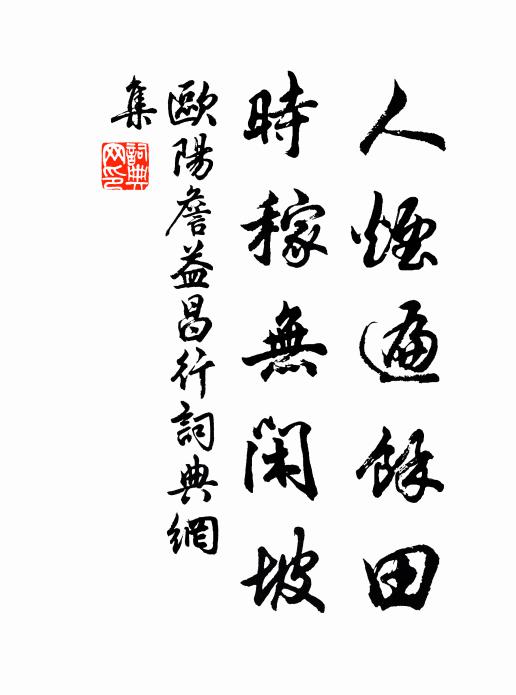 人煙遍餘田
時稼無閑坡
歐陽詹益昌行詞典網
集
詞典網印